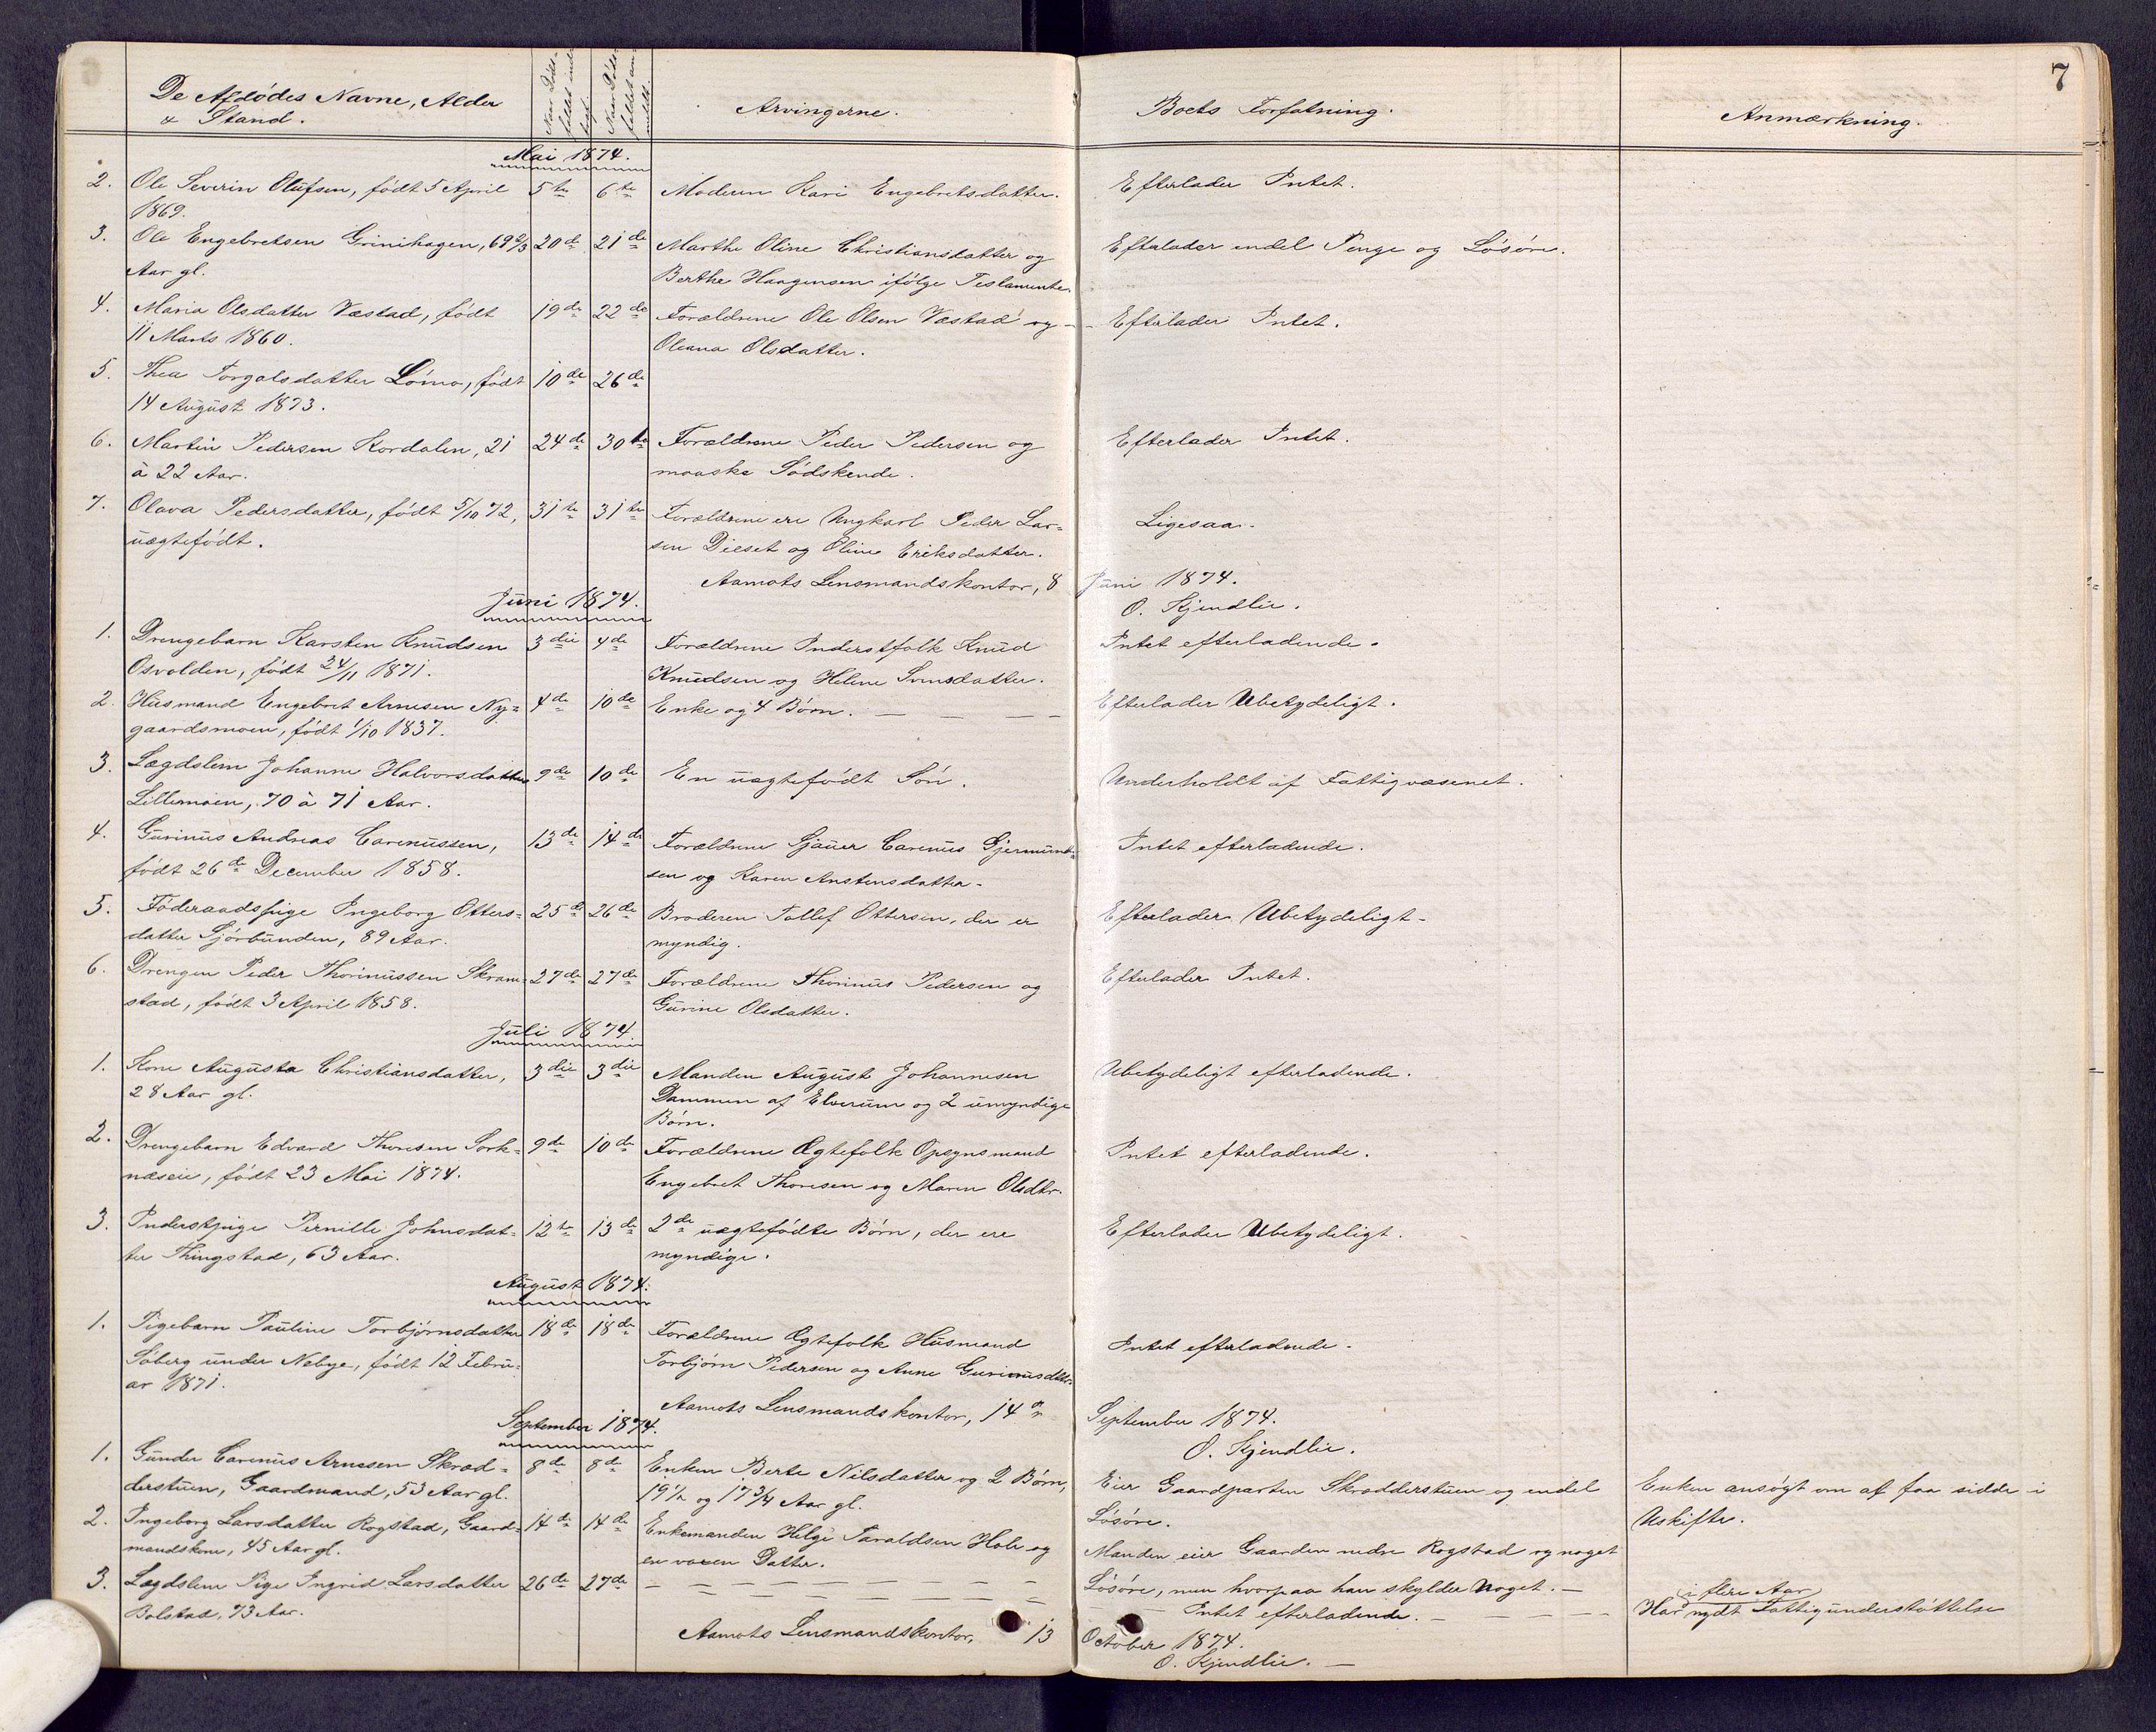 6
7
De Afdödes Navne, Alder
& Stand.
Naar Döds-
faldet ind-
traf.
Naar Döds-
faldet an-
meldt.
Arvingerne.
Boets Forfatning.
Anmærkning.
Mai 1874.
2. Ole Severin Olufsen, född 5 April 5te 6te Moderen Kari Engebretsdatter. Efterlader Intet.
1869.
3. Ole Engebretsen Grinihagen, 69 2/3 20de 21de Marthe Oline Christiansdatter og Efterlader endel Penge og Lösöre.
Aar gl. Berthe Haagensen ifölge Testamente.
4. Maria Olsdatter Væstad, födt 19de 22de Forældrene Ole Olsen Væstad og - - Efterlader Intet.
11 Marts 1860. Oleana Olsdatter.
5. Thea Torgalsdatter Lömo, födt 10de 26de
14 August 1873.
6. Martin Pedersen Kordalen, 21 24de 30te Forældrene Peder Pedersen og Efterlader Intet.
à 22 Aar. maaske Södskende.
7. Olava Pedersdatter, födt 5/10 72, 31te 31te Forældrene ere Ungkarl Peder Lar= Ligesaa.
uægtefödt. sen Dieset og Oline Eriksdatter.
Aamots Lensmandskontor, 8 Juni 1874.
O. Kjendlie.
Juni 1874.
1. Drengebarn Karsten Knudsen 3die 4de Forældrene Inderstfolk Knud Intet efterladende.
Osvolden, födt 24/11 1871. Knudsen og Helene Svensdatter.
2. Husmand Engebret Arnesen Ny= 4de 10de Enke og 4 Börn. — — — — Efterlader Ubetydeligt.
gaardsmoen, födt 1/10 1837.
3. Lægdslem Johanne Halvorsdatter 9de 10de En uægtefödt Sön. Underholdt af Fattigvæsenet.
Lillemoen, 70 à 71 Aar.
4. Gurinus Andreas Carenussen, 13de 14de Forældrene Gjæver Carenus Gjermund= Intet efterladende.
födt 26de December 1858. sen og Karen Anstensdatter.
5. Föderaadspige Ingeborg Otters= 25de 26de Broderen Tollef Ottersen, der er Efterlader Ubetydeligt.
datter Sjörbunden, 89 Aar. myndig.
6. Drengen Peder Thorinussen Skram= 27de 27de Forældrene Thorinus Pedersen og Efterlader Intet.
stad, födt 3 April 1858. Gurine Olsdatter.
Juli 1874.
1. Kone Augusta Christiansdatter, 3die 3die Manden August Johannesen Ubetydeligt efterladende.
28 Aar gl. Dammen af Elverum og 2 umyndige
Börn.
2. Drengebarn Edvard Thoresen Sork= 9de 10de Forældrene Ægtefolk Opsynsmand Intet efterladende.
næseie, födt 23 Mai 1874. Engebret Thoresen og Maren Olsdtr.
3. Inderstpige Pernille Johnsdat= 12te 13de 2de uægtefödte Börn, der ere Efterlader Ubetydeligt.
ter Thingstad, 63 Aar. myndige.
August 1874.
1. Pigebarn Pauline Torbjörnsdatter 18de 18de Forældrene Ægtefolk Husmand Intet efterladende.
Söberg under Nebye, födt 12 Febru= Torbjörn Pedersen og Anne Gurinusdatter.
ar 1871.
Aamots Lensmandskontor, 14de September 1874.
O. Kjendlie.
September 1874.
1. Gunder Carenus Arnesen Skræd= 8de 8de Enken Berte Nilsdatter og 2 Börn, Eier Gaardparten Skrædderstuen og endel Enken ansögt om at faa sidde i
derstuen, Gaardmand, 53 Aar gl. 19½ og 17¾ Aar gl. Lösöre. Uskifte.
2. Ingeborg Larsdatter Rogstad, Gaard= 14de 14de Enkemanden Helge Taraldsen Hole og Manden eier Gaarden nedre Rogstad og noget
mandskone, 45 Aar gl. en voxen Datter. Lösöre, men hvorpaa han skylder Noget. —
3. Lægdslem Pige Ingrid Larsdatter 26de 27de — — — — — — — Intet efterladende. — — — — Har i flere Aar nydt Fattigunderstöttelse
Bolstad, 73 Aar.
Aamots Lensmandskontor, 13 October 1874.
O. Kjendlie. —